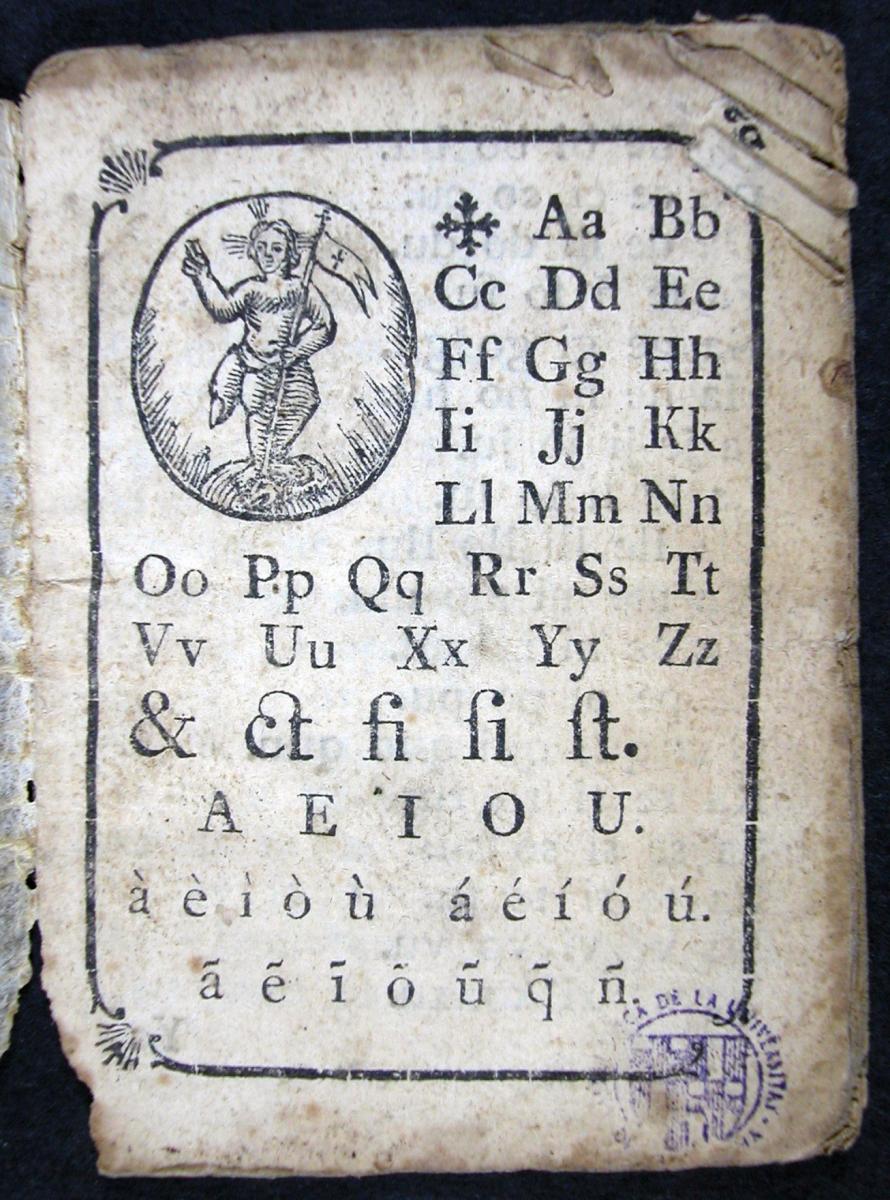 ✠ Aa Bb
Cc Dd Ee
Ff Gg Hh
Ii Jj Kk
Ll Mm Nn
Oo Pp Qq Rr Ss Tt
Vv Uu Xx Yy Zz
& ct fi ſi ſt.
A E I O U.
à è ì ò ù á é í ó ú.
ã ẽ ĩ õ ũ q̃ ñ.
DE LA